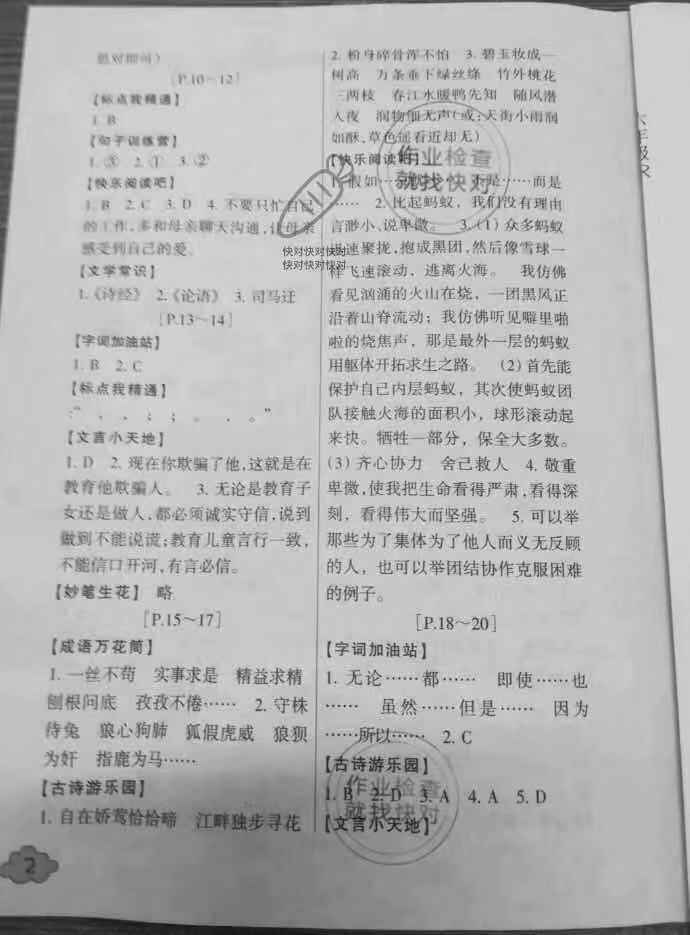 [P.10～12]
【标点我精通】
1. B
【句子训练营】
1. ③ 2. ① 3. ②
【快乐阅读吧】
1. B 2. C 3. D 4. 不要只忙自己
的工作,多和母亲聊天沟通,让母亲
感受到自己的爱。
【文学常识】
1.《诗经》 2.《论语》 3. 司马迁
[P.13～14]
【字词加油站】
1. B 2. C
【标点我精通】
:“ , , ; 。 , 。”
【文言小天地】
1. D 2. 现在你欺骗了他,这就是在
教育他欺骗人。 3. 无论是教育子
女还是做人,都必须诚实守信,说到
做到不能说谎;教育儿童言行一致,
不能信口开河,有言必信。
【妙笔生花】 略
[P.15～17]
【成语万花筒】
1. 一丝不苟 实事求是 精益求精
刨根问底 孜孜不倦…… 2. 守株
待兔 狼心狗肺 狐假虎威 狼狈
为奸 指鹿为马……
【古诗游乐园】
1. 自在娇莺恰恰啼 江畔独步寻花
2
2. 粉身碎骨浑不怕 3. 碧玉妆成一
树高 万条垂下绿丝绦 竹外桃花
三两枝 春江水暖鸭先知 随风潜
入夜 润物细无声(或:天街小雨润
如酥,草色遥看近却无)
【快乐阅读吧】
1. 假如……就…… 不是……而是
…… 2. 比起蚂蚁,我们没有理由
言渺小、说卑微。 3. (1) 众多蚂蚁
迅速聚拢,抱成黑团,然后像雪球一
样飞速滚动,逃离火海。 我仿佛
看见汹涌的火山在烧,一团黑风正
沿着山脊流动;我仿佛听见噼里啪
啦的烧焦声,那是最外一层的蚂蚁
用躯体开拓求生之路。 (2) 首先能
保护自己内层蚂蚁,其次使蚂蚁团
队接触火海的面积小,球形滚动起
来快。牺牲一部分,保全大多数。
(3) 齐心协力 舍己救人 4. 敬重
卑微,使我把生命看得严肃,看得深
刻,看得伟大而坚强。 5. 可以举
那些为了集体为了他人而义无反顾
的人,也可以举团结协作克服困难
的例子。
[P.18～20]
【字词加油站】
1. 无论……都…… 即使……也
…… 虽然……但是…… 因为
……所以…… 2. C
【古诗游乐园】
1. B 2. D 3. A 4. A 5. D
【文言小天地】
作业检查
就找快对
快对快对快对
快对快对快对
作业检查
就找快对
六年级